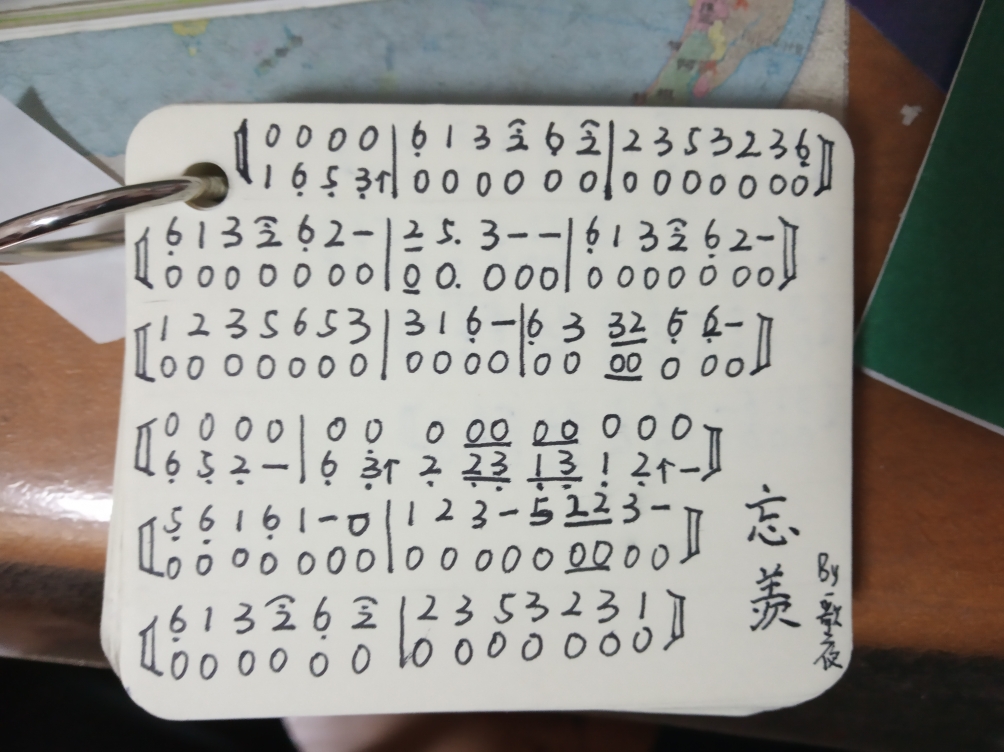 0 0 0 0 | 6̣ 1 3 2̑ 6̣ 2̑ | 2 3 5 3 2 3 6̣
1 6̣ 5̣ 3̣↑ | 0 0 0 0 0 0 | 0 0 0 0 0 0 0
6̣ 1 3 2̑ 6̣ 2 – | 2̲ 5. 3 – – | 6̣ 1 3 2̑ 6̣ 2 –
0 0 0 0 0 0 0 | 0̲ 0. 0 0 0 | 0 0 0 0 0 0 0
1 2 3 5 6 5 3 | 3 1 6̣ – | 6̣ 3 3̲2̲ 6̣ 6̣ –
0 0 0 0 0 0 0 | 0 0 0 0 | 0 0 0̲0̲ 0 0 0
0 0 0 0 | 0 0 0 0̲0̲ 0̲0̲ 0 0 0
6̣ 5̣ 2̣ – | 6̣ 3̣↑ 2̣ 2̲̣3̲̣ 1̲̣3̲̣ 1̣ 2̣↑ –
5̣ 6̣ 1 6̣ 1 – 0 | 1 2 3 – 5 2̲2̲ 3 –
0 0 0 0 0 0 0 | 0 0 0 0 0 0̲0̲ 0 0
6̣ 1 3 2̑ 6̣ 2̑ | 2 3 5 3 2 3 1
0 0 0 0 0 0 | 0 0 0 0 0 0 0
忘羡
By 歌夜